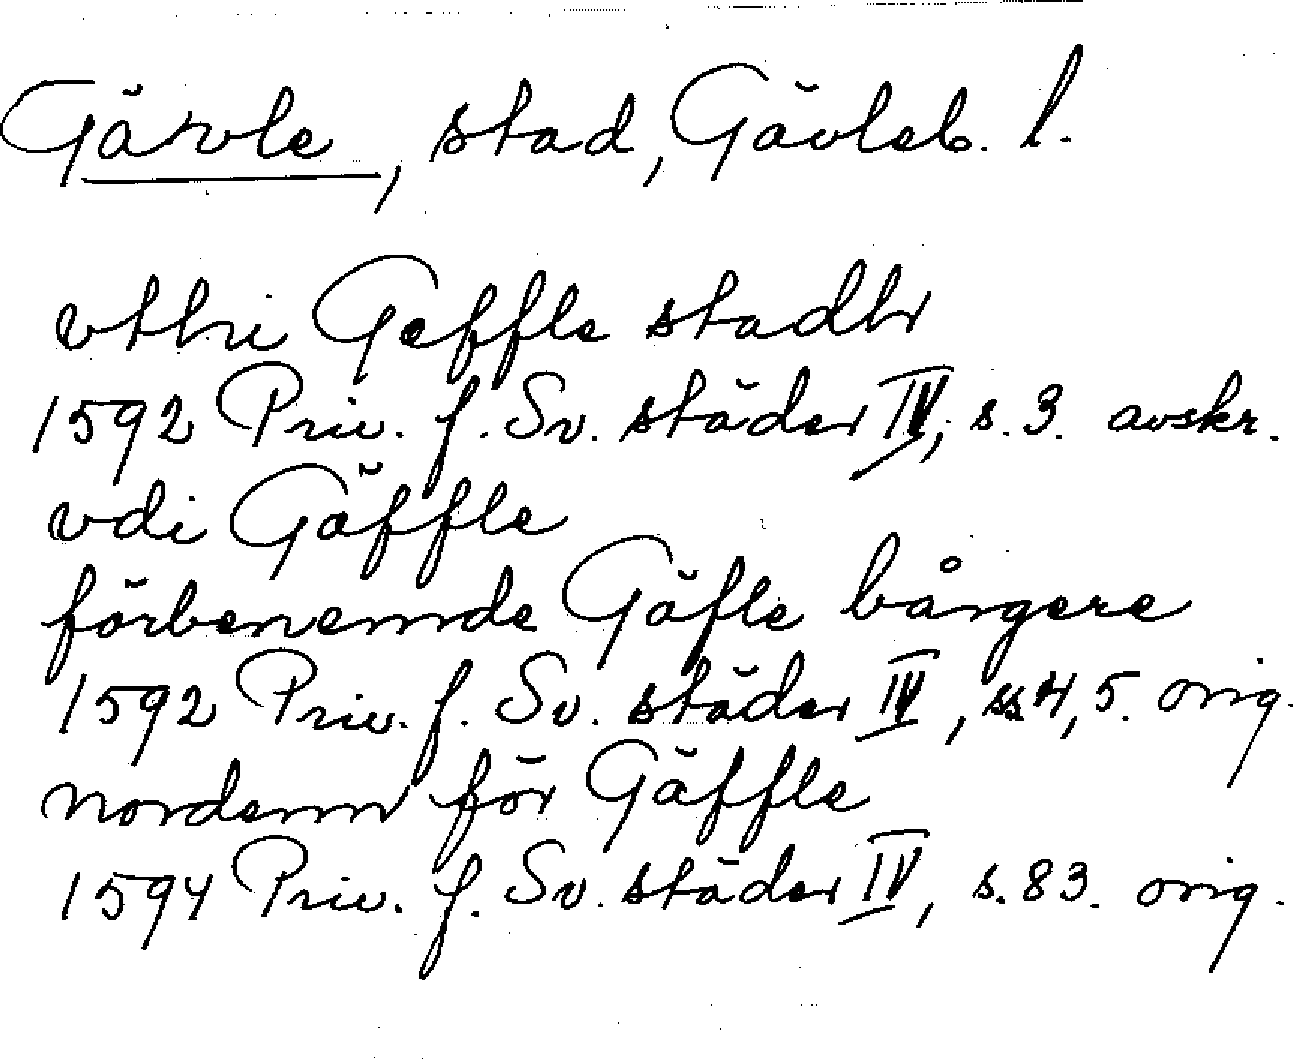 Gävle, stad, Gävleb. l.
vthi Geffle stadh
1592 Priv. f. Sv. städer IV, s. 3. avskr.
vdi Gäffle
förbenemde Gäfle bårgere
1592 Priv. f. Sv. städer IV, ss 4, 5. orig.
nordenn för Gäffle
1594 Priv. f. Sv. städer IV, s. 83. orig.